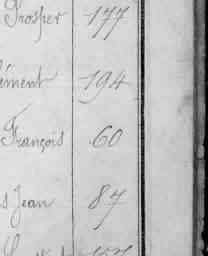 Prosper 177
ément 194
François 60
s Jean 87